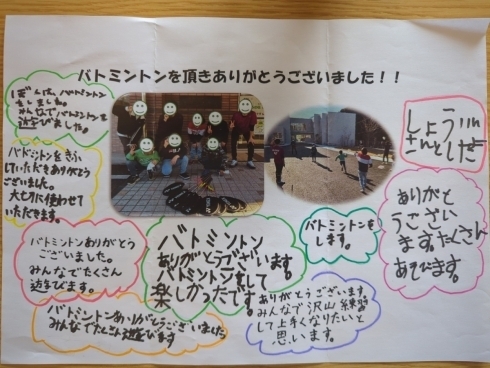 バトミントンを頂きありがとうございました！！
をしました。
みんなでバトミントンを
遊びました。
バドミントンをきふ
していただきありがとう
ございました。
大切に使わせて
いただきます。
バドミントンありがとう
ございました。
みんなでたくさん
遊びます。
バドミントンありがとうございました
みんなでたくさん遊びます
バトミントン
ありがとうございます。
バトミントンをして
楽しかったです。
バトミントンを
します。
ありがとうございます。
みんなで沢山練習
して上手くなりたいと
思います。
ありがと
うござい
ます。たくさん
あそびます。